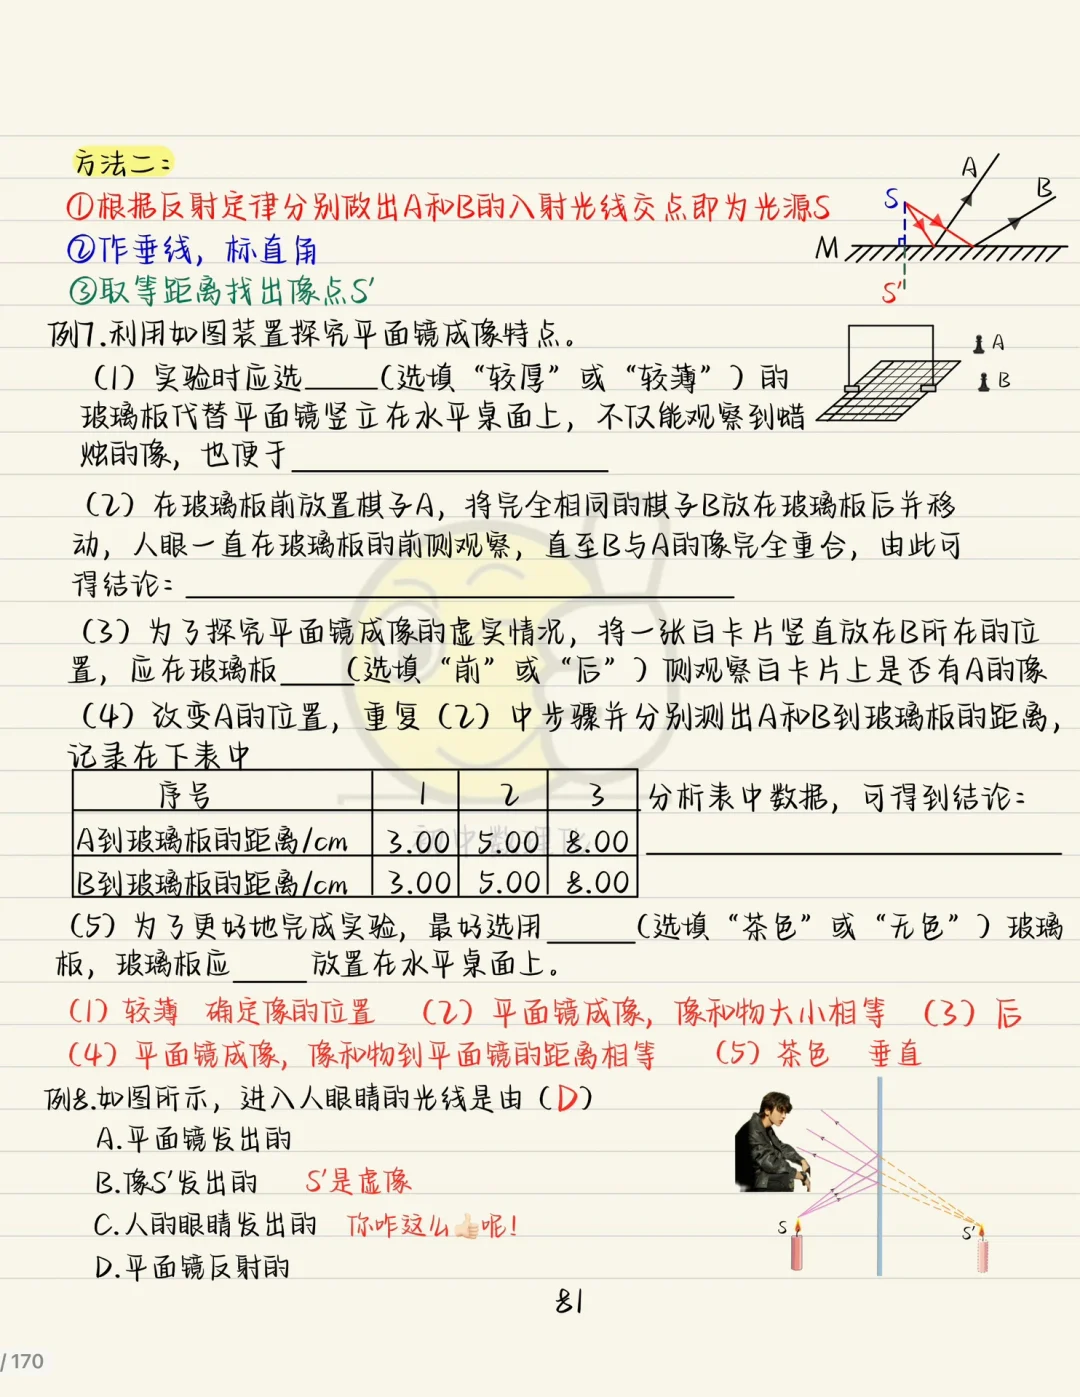 方法二:
①根据反射定律分别做出A和B的入射光线交点即为光源S
②作垂线，标直角
③取等距离找出像点S′
A
B
S
M
S′
例7.利用如图装置探究平面镜成像特点。
(1) 实验时应选____(选填“较厚”或“较薄”) 的
玻璃板代替平面镜竖立在水平桌面上，不仅能观察到蜡
烛的像，也便于____
A
B
(2) 在玻璃板前放置棋子A，将完全相同的棋子B放在玻璃板后并移
动，人眼一直在玻璃板的前侧观察，直至B与A的像完全重合，由此可
得结论:____
(3) 为了探究平面镜成像的虚实情况，将一张白卡片竖直放在B所在的位
置，应在玻璃板____(选填“前”或“后”) 侧观察白卡片上是否有A的像
(4) 改变A的位置，重复 (2) 中步骤并分别测出A和B到玻璃板的距离，
记录在下表中
序号 1 2 3
A到玻璃板的距离/cm 3.00 5.00 8.00
B到玻璃板的距离/cm 3.00 5.00 8.00
分析表中数据，可得到结论:
____
(5) 为了更好地完成实验，最好选用____(选填“茶色”或“无色”) 玻璃
板，玻璃板应____放置在水平桌面上。
(1) 较薄 确定像的位置 (2) 平面镜成像，像和物大小相等 (3) 后
(4) 平面镜成像，像和物到平面镜的距离相等 (5) 茶色 垂直
例8.如图所示，进入人眼睛的光线是由 (D)
A.平面镜发出的
B.像S′发出的 S′是虚像
C.人的眼睛发出的 你咋这么👍呢!
D.平面镜反射的
S
S′
81
/170
初中数理化